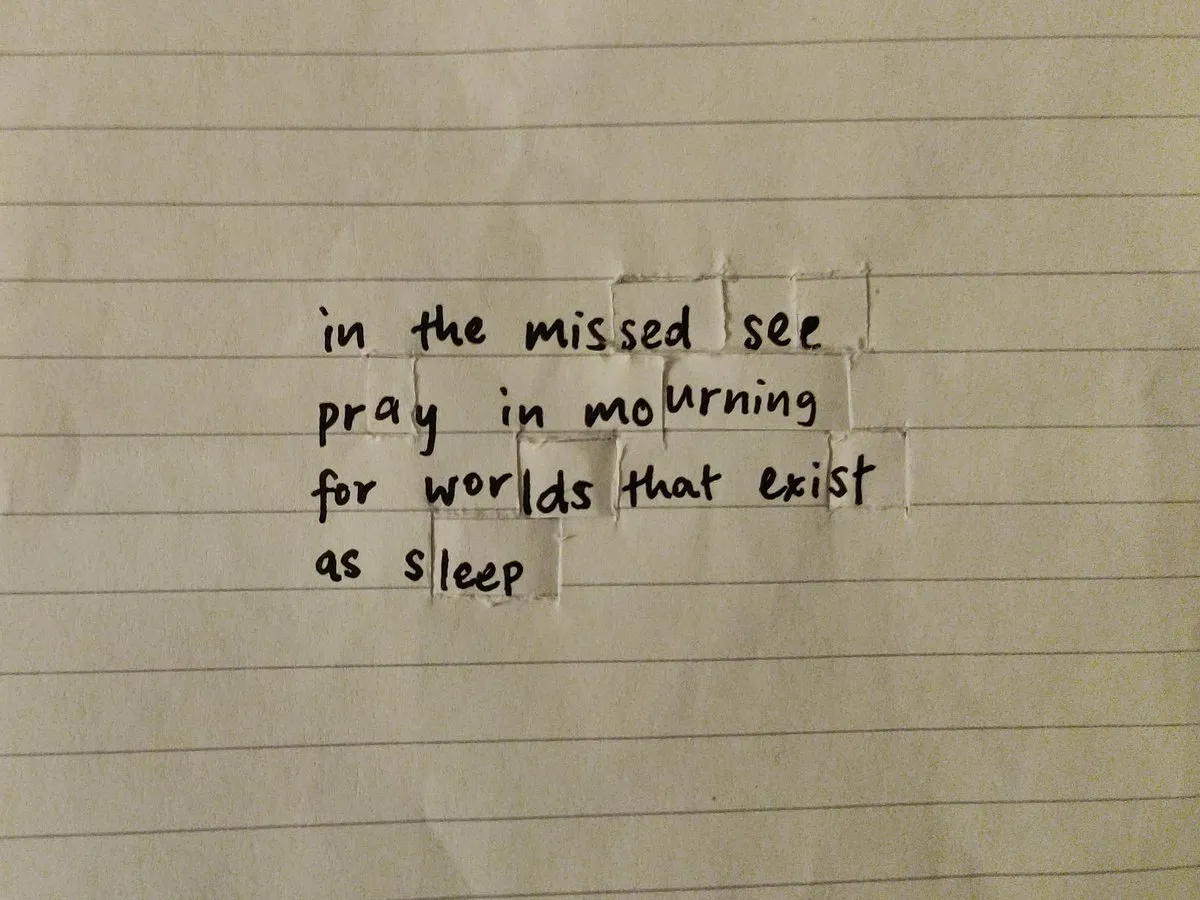 in the missed see
pray in mourning
for worlds that exist
as sleep